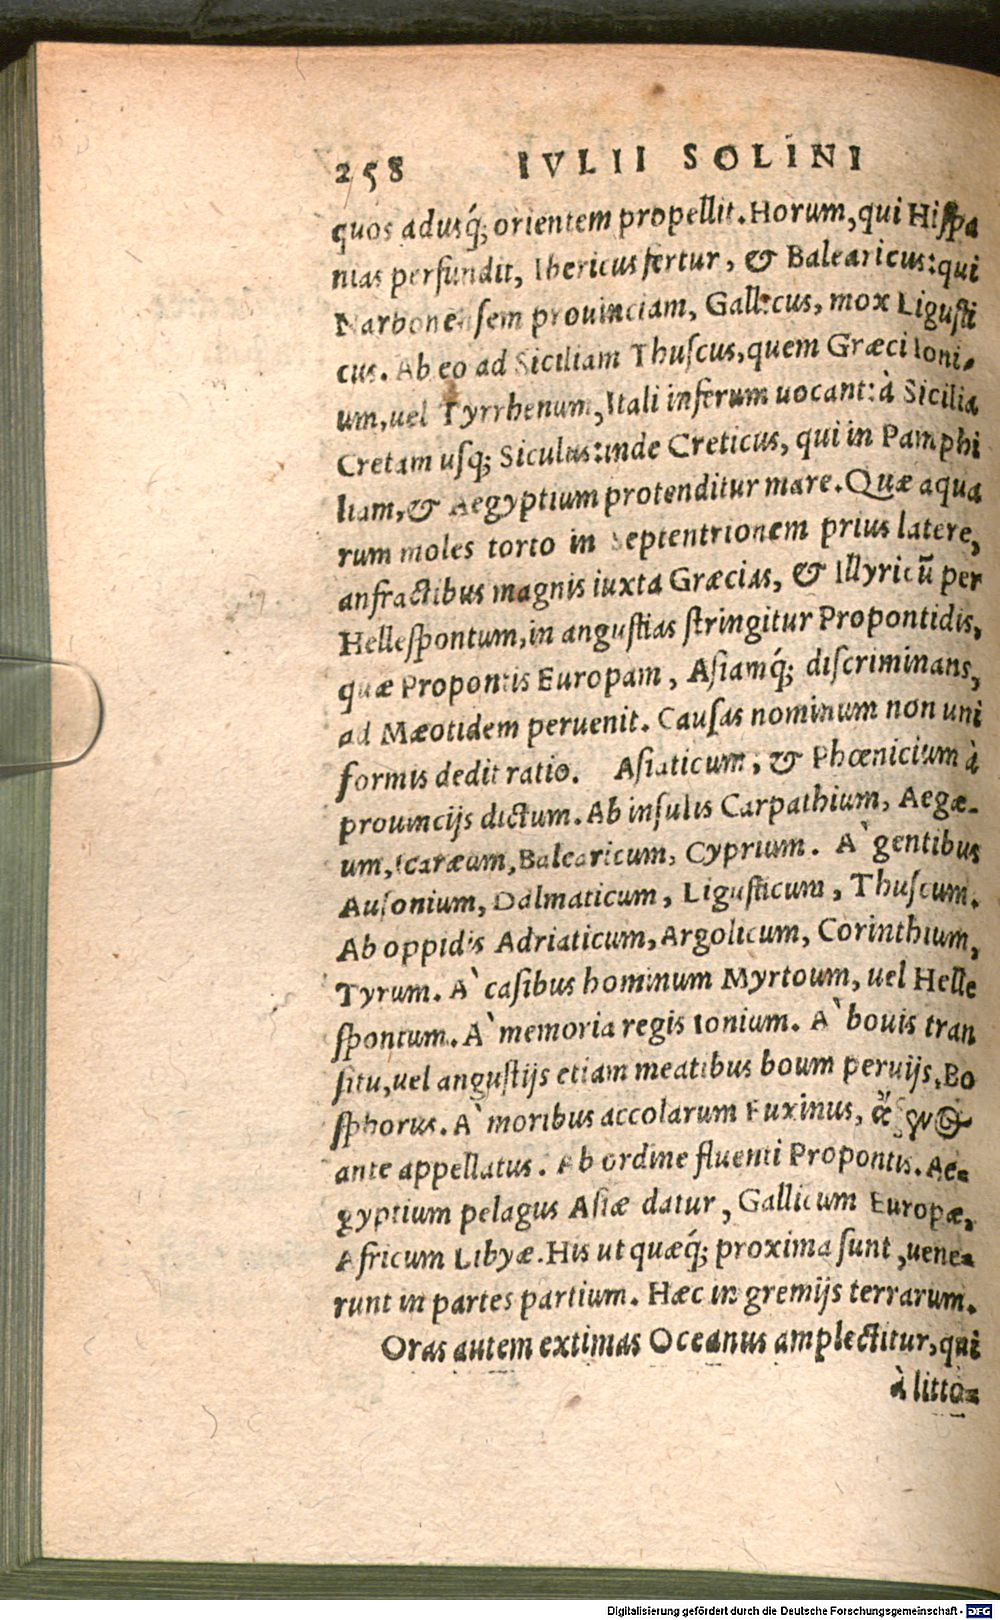 258 IVLII SOLINI
quos adusq́; orientem propellit. Horum, qui Hispa
nias perfundit, Ibericus fertur, & Balearicus: qui
Narbonensem prouinciam, Gallicus, mox Ligusti
cus. Ab eo ad Siciliam Thuscus, quem Græci Ioni-
um, uel Tyrrhenum, Itali inferum uocant: à Sicilia
Cretam usq; Siculus: inde Creticus, qui in Pamphi
liam, & Aegyptium protenditur mare. Quæ aqua
rum moles torto in Septentrionem prius latere,
anfractibus magnis iuxta Græcias, & Illyricū per
Hellespontum, in angustias stringitur Propontidis,
quæ Propontis Europam, Asiamq́; discriminans,
ad Mæotidem peruenit. Causas nominum non uni
formis dedit ratio. Asiaticum, & Phœnicium à
prouincijs dictum. Ab insulis Carpathium, Aegæ-
um, Icaræum, Balearicum, Cyprium. A` gentibus
Ausonium, Dalmaticum, Ligusticum, Thuscum.
Ab oppidis Adriaticum, Argolicum, Corinthium,
Tyrum. A` casibus hominum Myrtoum, uel Helle
spontum. A` memoria regis Ionium. A` bouis tran
situ, uel angustijs etiam meatibus boum peruijs, Bo
sphorus. A` moribus accolarum Euxinus,
ante appellatus. Ab ordine fluenti Propontis. Ae-
gyptium pelagus Asiæ datur, Gallicum Europæ,
Africum Libyæ. His ut quæq́; proxima sunt, uene-
runt in partes partium. Hæc in gremijs terrarum.
Oras autem extimas Oceanus amplectitur, qui
à litto-
Digitalisierung gefördert durch die Deutsche Forschungsgemeinschaft - DFG